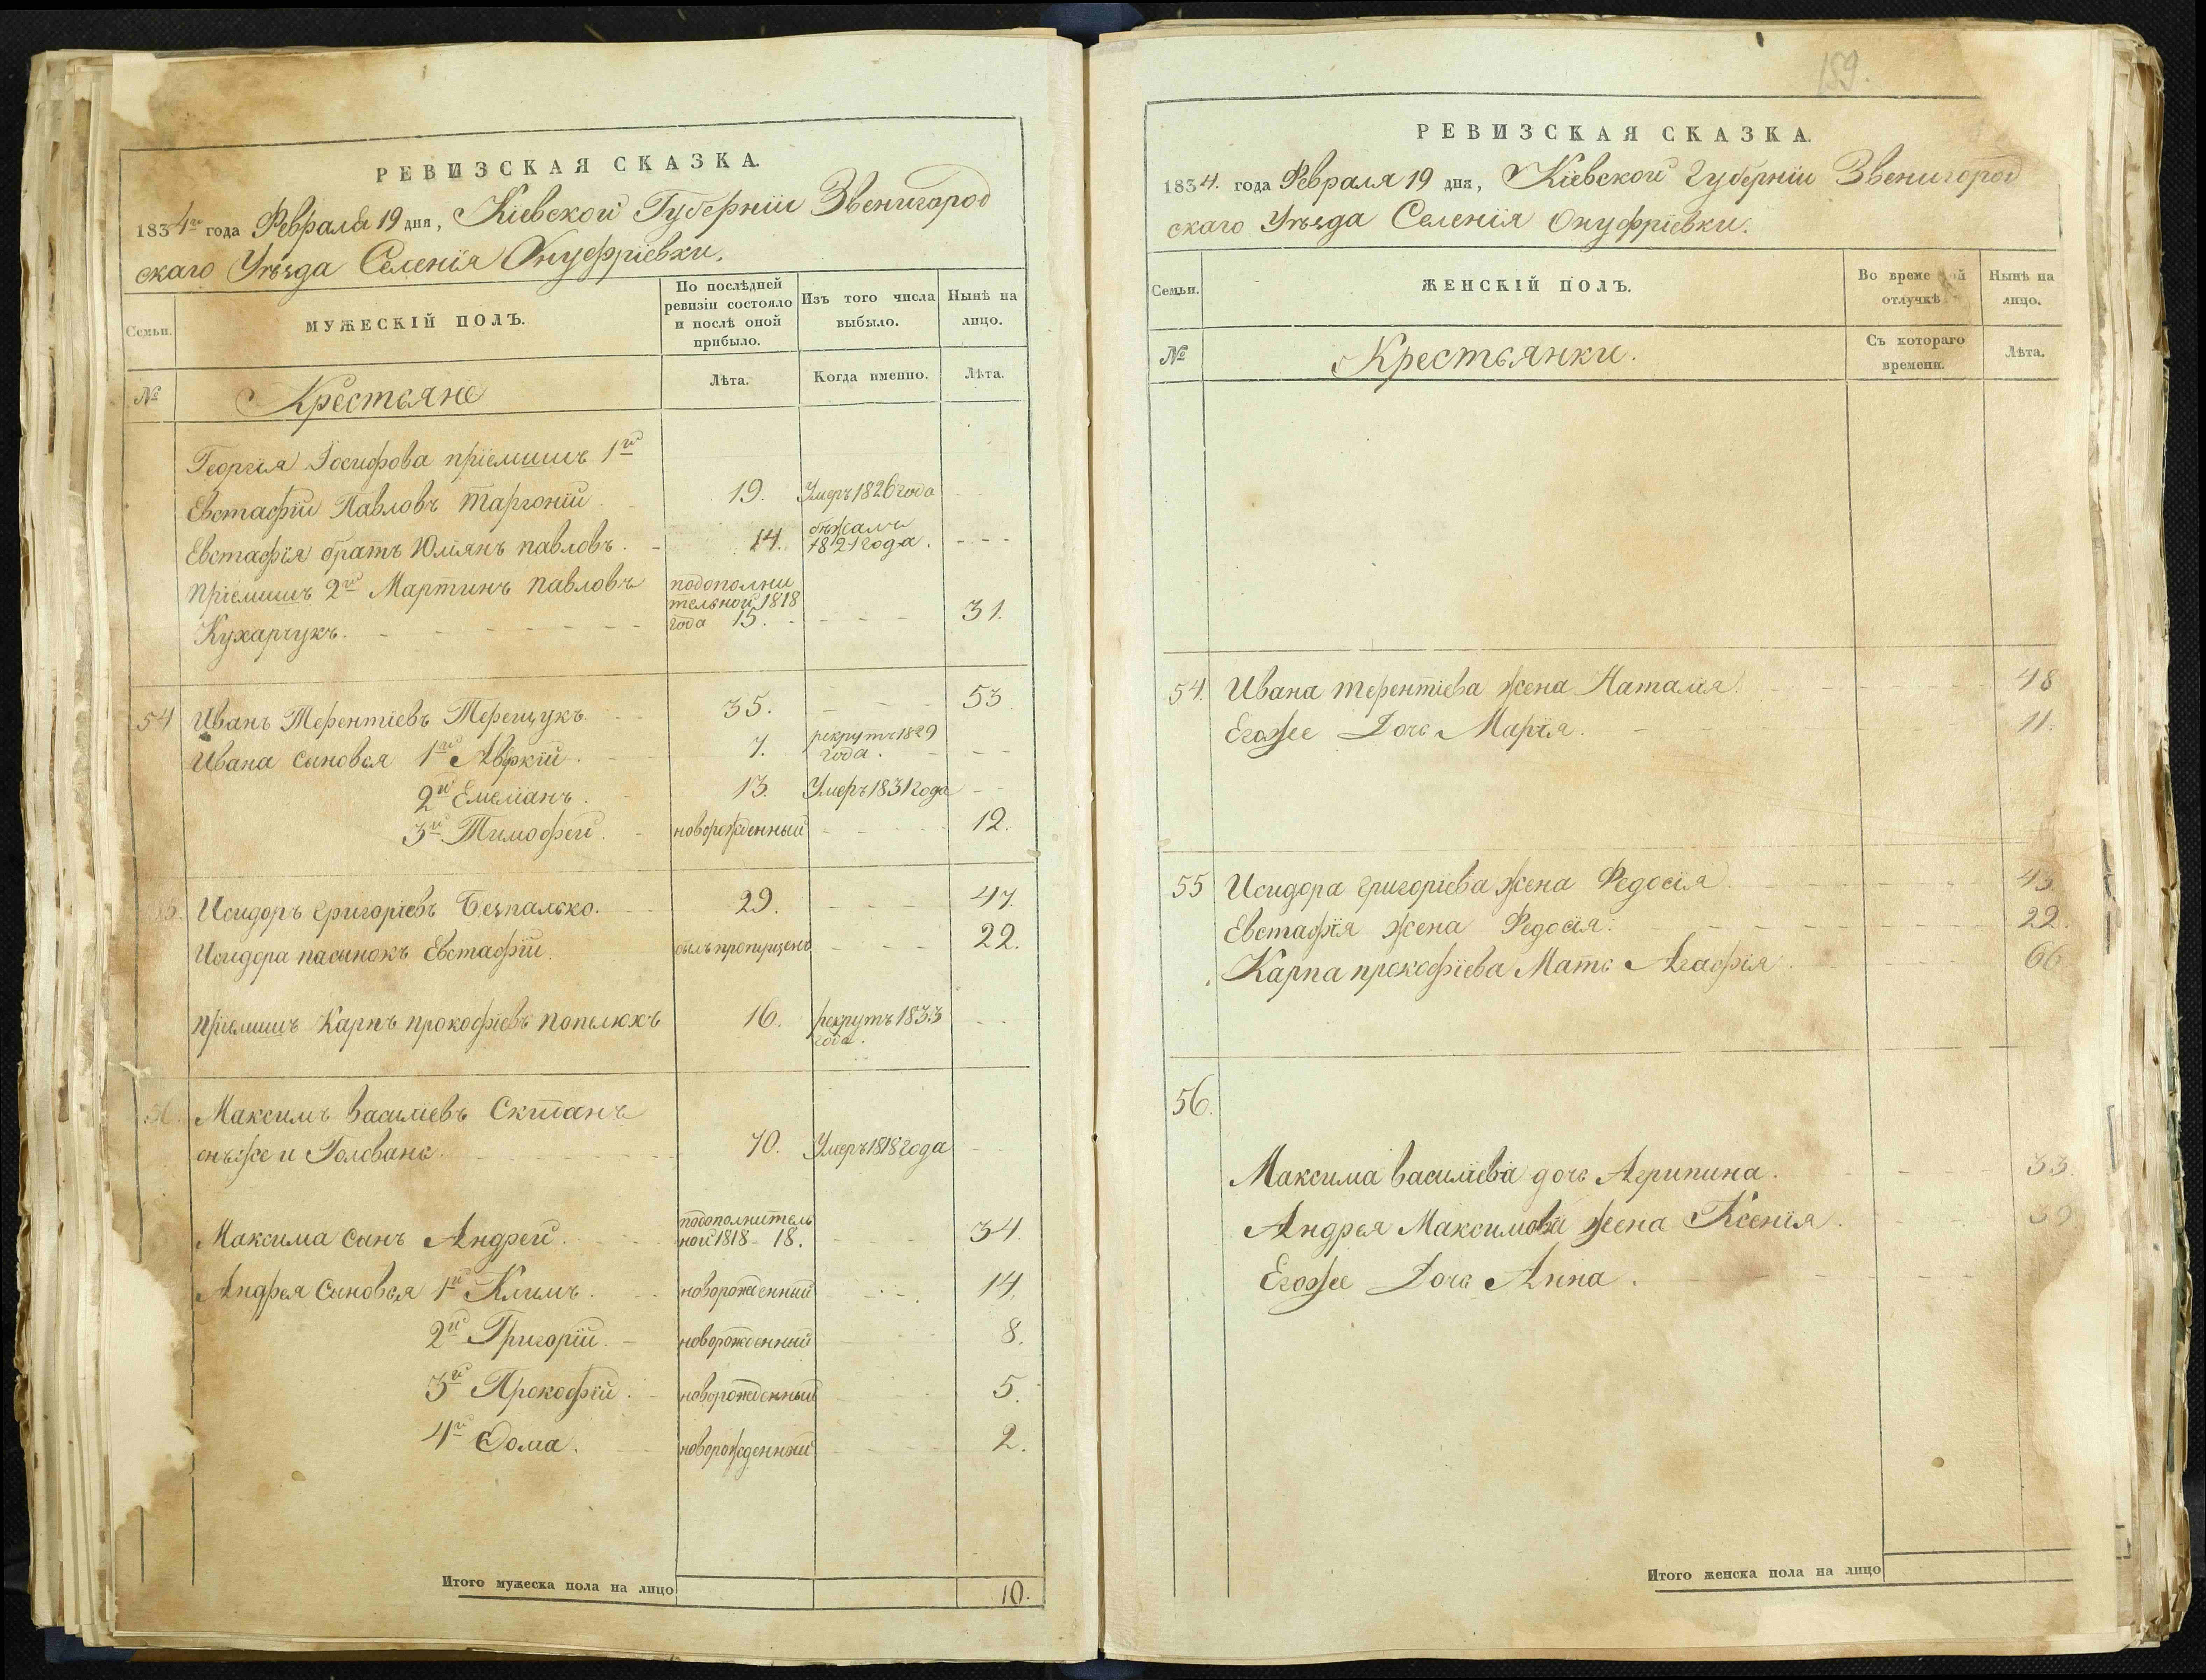 РЕВИЗСКАЯ СКАЗКА.
1834го года Февраля 19 дня, Кіевской Губерніи Звенигород
скаго Уѣзда Селенія Онуфріевки.
Семьи.
МУЖЕСКІЙ ПОЛЪ.
По послѣдней ревизіи состояло и послѣ оной прибыло.
Изъ того числа выбыло.
Нынѣ на лицо.
№
Крестьяне
Лѣта.
Когда именно.
Лѣта.
Георгія Іосифова пріемишъ 1й
Евстафій Павловъ Таргоній 19. Умеръ 1826 года
Евстафія братъ Юліянъ павловъ. 14. бѣжалъ 1821 года.
пріемишъ 2й Мартинъ павловъ подополни
тельной 1818
Кухарчукъ. года 15. 31.
54 Иванъ Терентіевъ Терещукъ. 35. 53
Ивана сыновья 1й Аверкій. 7. рекрутъ 1829 года.
2й Емеліанъ. 13. Умеръ 1831 года
3й Тимофей. новорожденный 12.
55. Исидоръ григоріевъ Безпалько. 29. 47.
Исидора пасынокъ Евстафій. былъ пропущенъ 22.
пріемишъ Карпъ прокофіевъ попелюхъ 16. рекрутъ 1833 года.
56. Максимъ василіевъ Скитанъ
онъ же и Голованъ. 70. Умеръ 1818 года
Максима сынъ Андрей. подополнитель
ной 1818 18. 34.
Андрея сыновья 1й Климъ. новорожденный 14.
2й Григорій. новорожденный 8.
3й Прокофій. новорожденный 5.
4й Ѳома. новорожденный 2.
Итого мужеска пола на лицо 10.
159.
РЕВИЗСКАЯ СКАЗКА.
1834. года Февраля 19 дня, Кіевской Губерніи Звенигород
скаго Уѣзда Селенія Онуфріевки.
Семьи.
ЖЕНСКІЙ ПОЛЪ.
Во време й отлучкѣ
Нынѣ на лицо.
№
Крестьянки.
Съ котораго времени.
Лѣта.
54. Ивана терентіева жена Наталія. 48
Егоже Дочь Марія. 11.
55 Исидора григоріева жена Федосія. 43
Евстафія жена Федосія. 22.
Карпа прокофіева Мать Агафія. 66
56.
Максима василіева дочь Агрипина. 33.
Андрея Максимова жена Ксенія. 39
Егоже Дочь Анна.
Итого женска пола на лицо